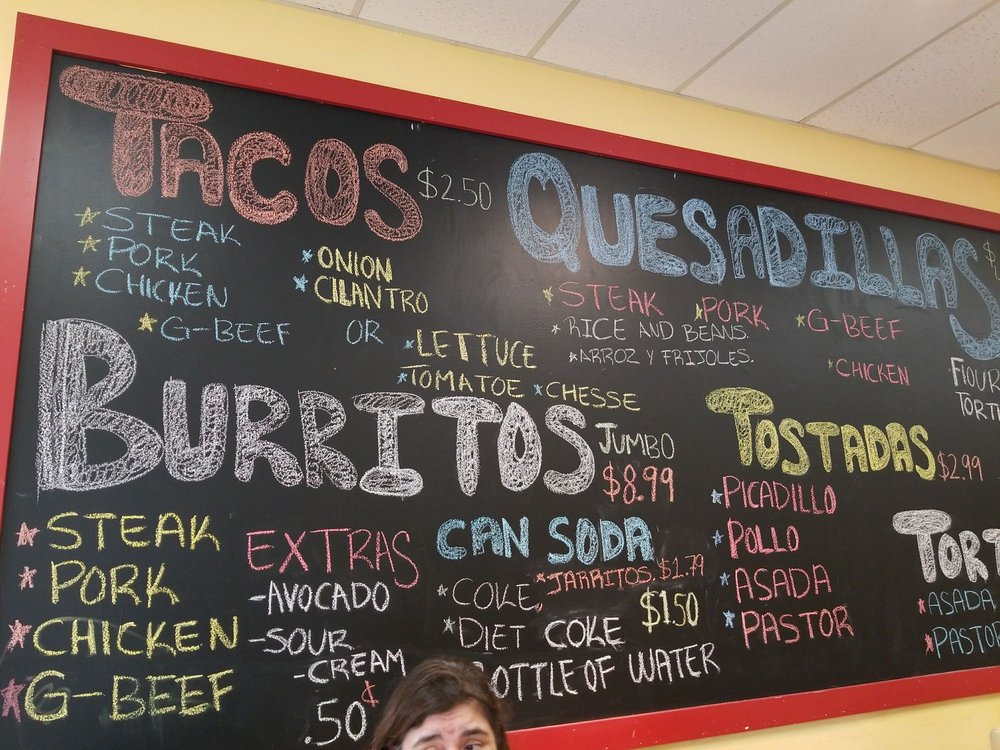 TACOS $2.50
*STEAK
*PORK
*CHICKEN
*G-BEEF
*ONION
*CILANTRO
OR
*LETTUCE
*TOMATOE *CHESSE
QUESADILLAS $
*STEAK *PORK *G-BEEF
*RICE AND BEANS.
*ARROZ Y FRIJOLES.
*CHICKEN
BURRITOS JUMBO
$8.99
*STEAK
*PORK
*CHICKEN
*G-BEEF
EXTRAS
-AVOCADO
-SOUR
-CREAM
.50¢
CAN SODA
*JARRITOS. $1.79
*COKE,
*DIET COKE $1.50
OTTLE OF WATER
TOSTADAS $2.99
*PICADILLO
*POLLO
*ASADA
*PASTOR
TORT
*ASADA
*PASTOR